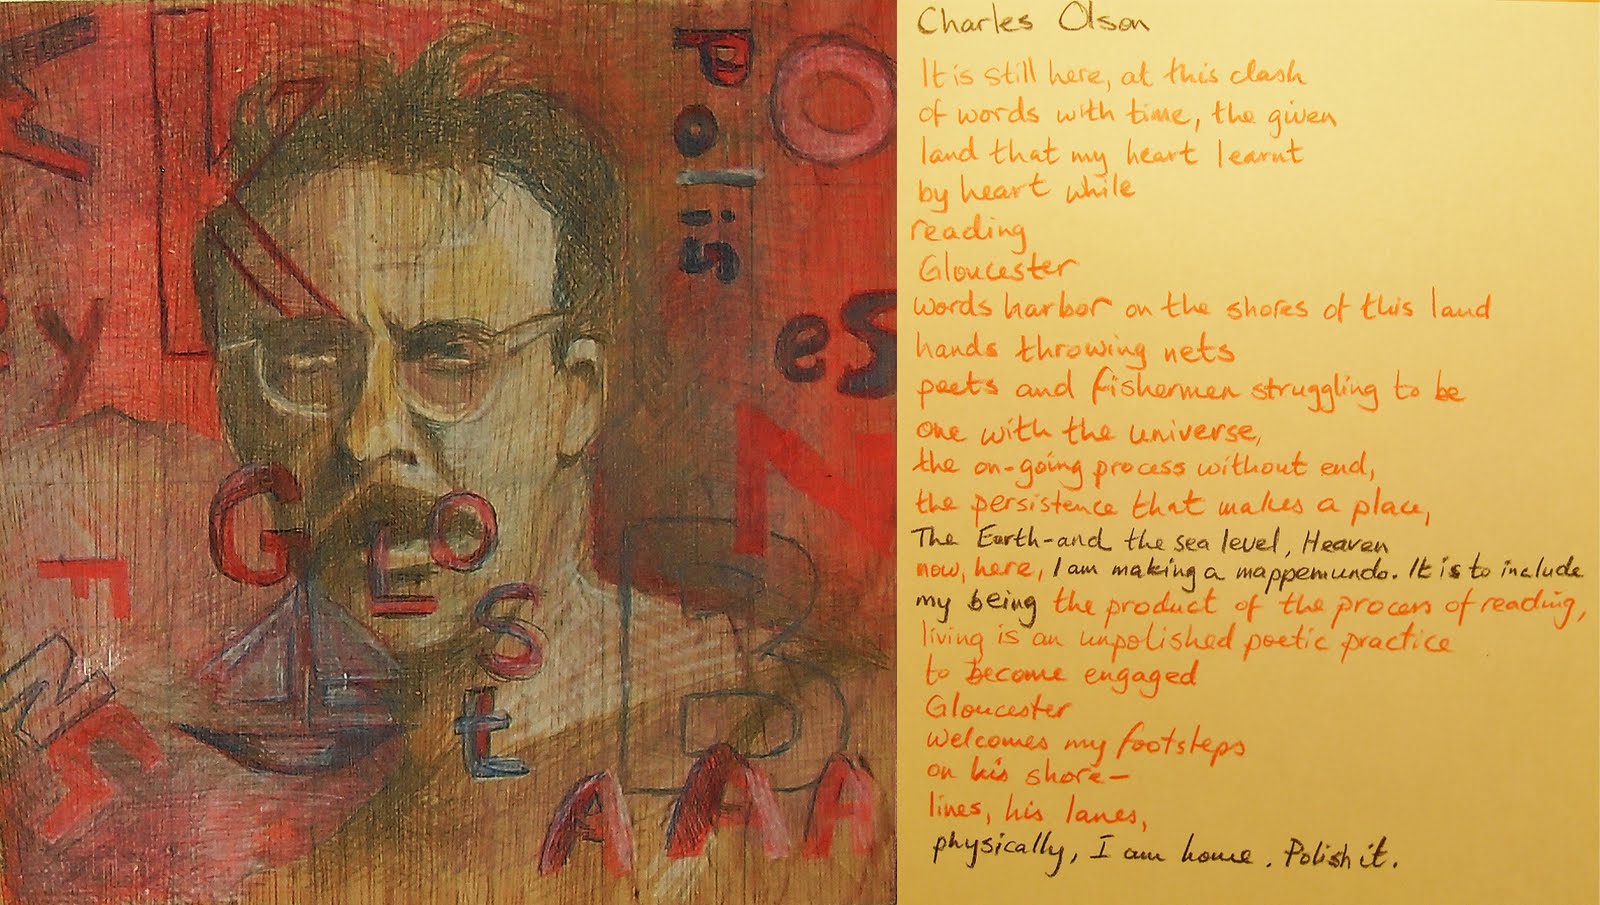 Polis
O
es
N
ey
G
LO
S
t
F
N
AAAA
Charles Olson
It is still here, at this clash
of words with time, the given
land that my heart learnt
by heart while
reading
Gloucester
words harbor on the shores of this land
hands throwing nets
poets and fishermen struggling to be
one with the universe,
the on-going process without end,
the persistence that makes a place,
The Earth-and the sea level, Heaven
now, here, I am making a mappemundo. It is to include
my being the product of the process of reading,
living is an unpolished poetic practice
to become engaged
Gloucester
welcomes my footsteps
on his shore—
lines, his lanes,
physically, I am home. Polish it.